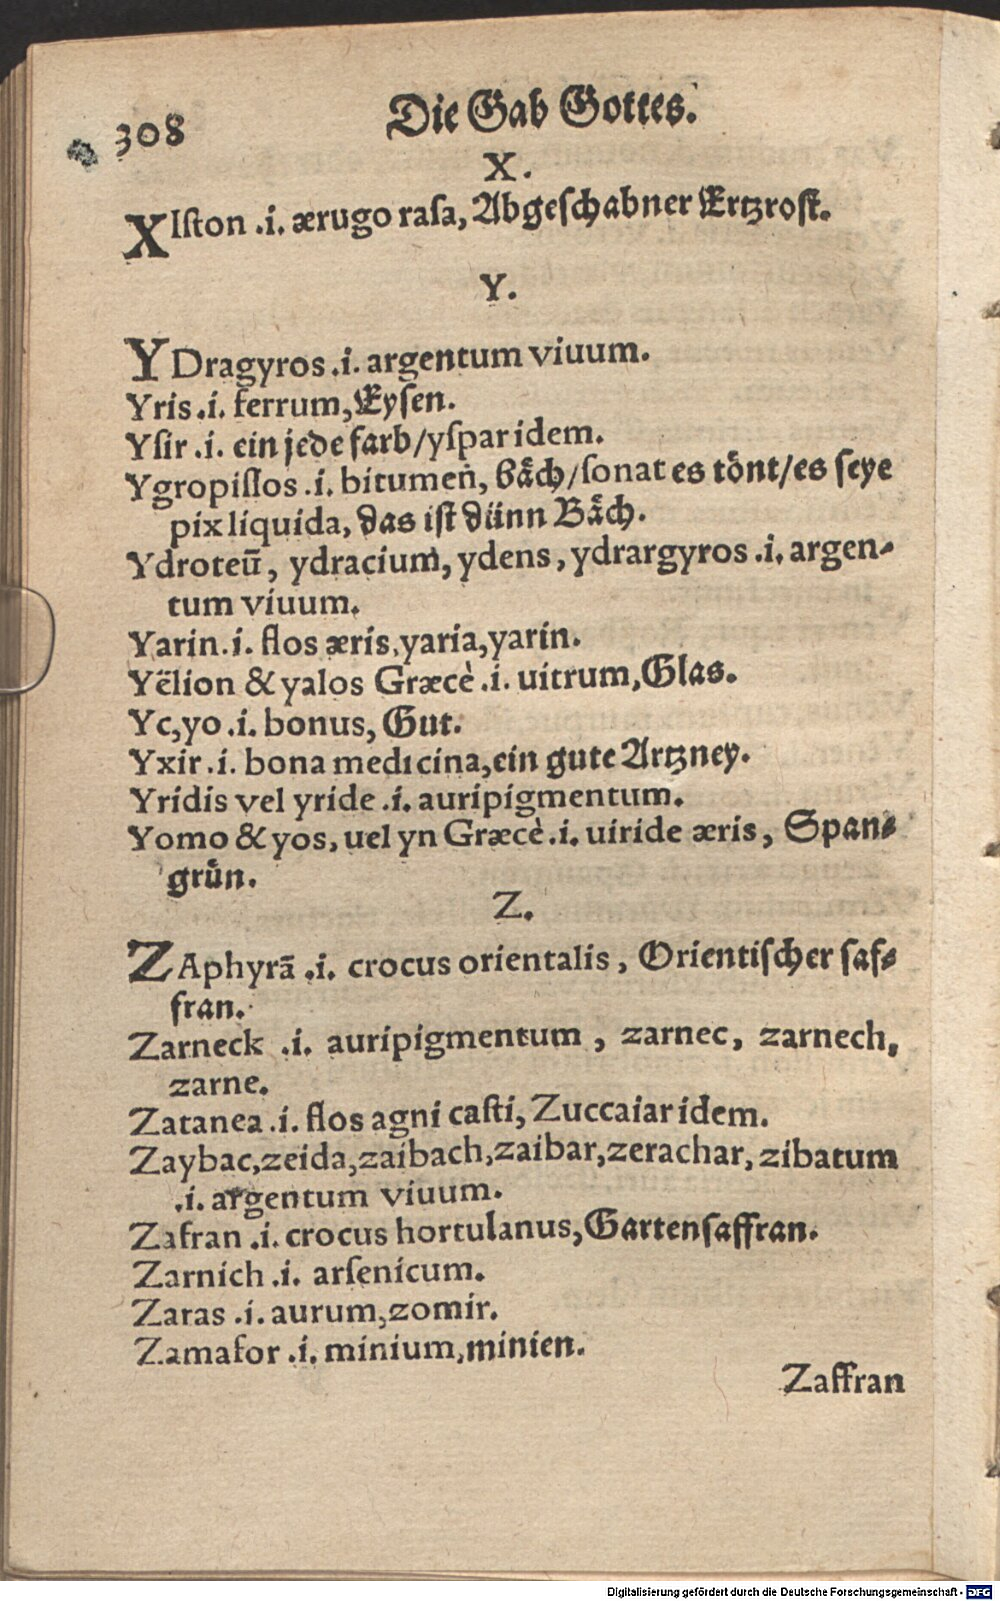 308
Die Gab Gottes.
X.
XIſton .i. ærugo raſa, Abgeſchabner Ertzroſt.
Y.
YDragyros .i. argentum viuum.
Yris .i. ferrum, Eyſen.
Yſir .i. ein jede farb/yſpar idem.
Ygropiſſos .i. bitumen, båch/ſonat es tönt/es ſeye
pix liquida, das iſt dünn Båch.
Ydroteū, ydracium, ydens, ydrargyros .i. argen-
tum viuum.
Yarin .i. flos æris, yaria, yarin.
Yëlion & yalos Græcè .i. uitrum, Glas.
Yc, yo .i. bonus, Gut.
Yxir .i. bona medicina, ein gute Artzney.
Yridis vel yride .i. auripigmentum.
Yomo & yos, uel yn Græcè .i. uiride æris, Span-
grün.
Z.
ZAphyrā .i. crocus orientalis, Orientiſcher ſaf-
fran.
Zarneck .i. auripigmentum, zarnec, zarnech,
zarne.
Zatanea .i. flos agni caſti, Zuccaiar idem.
Zaybac, zeida, zaibach, zaibar, zerachar, zibatum
.i. argentum viuum.
Zafran .i. crocus hortulanus, Gartenſaffran.
Zarnich .i. arſenicum.
Zaras .i. aurum, zomir.
Zamafor .i. minium, minien.
Zaffran
Digitalisierung gefördert durch die Deutsche Forschungsgemeinschaft - DFG